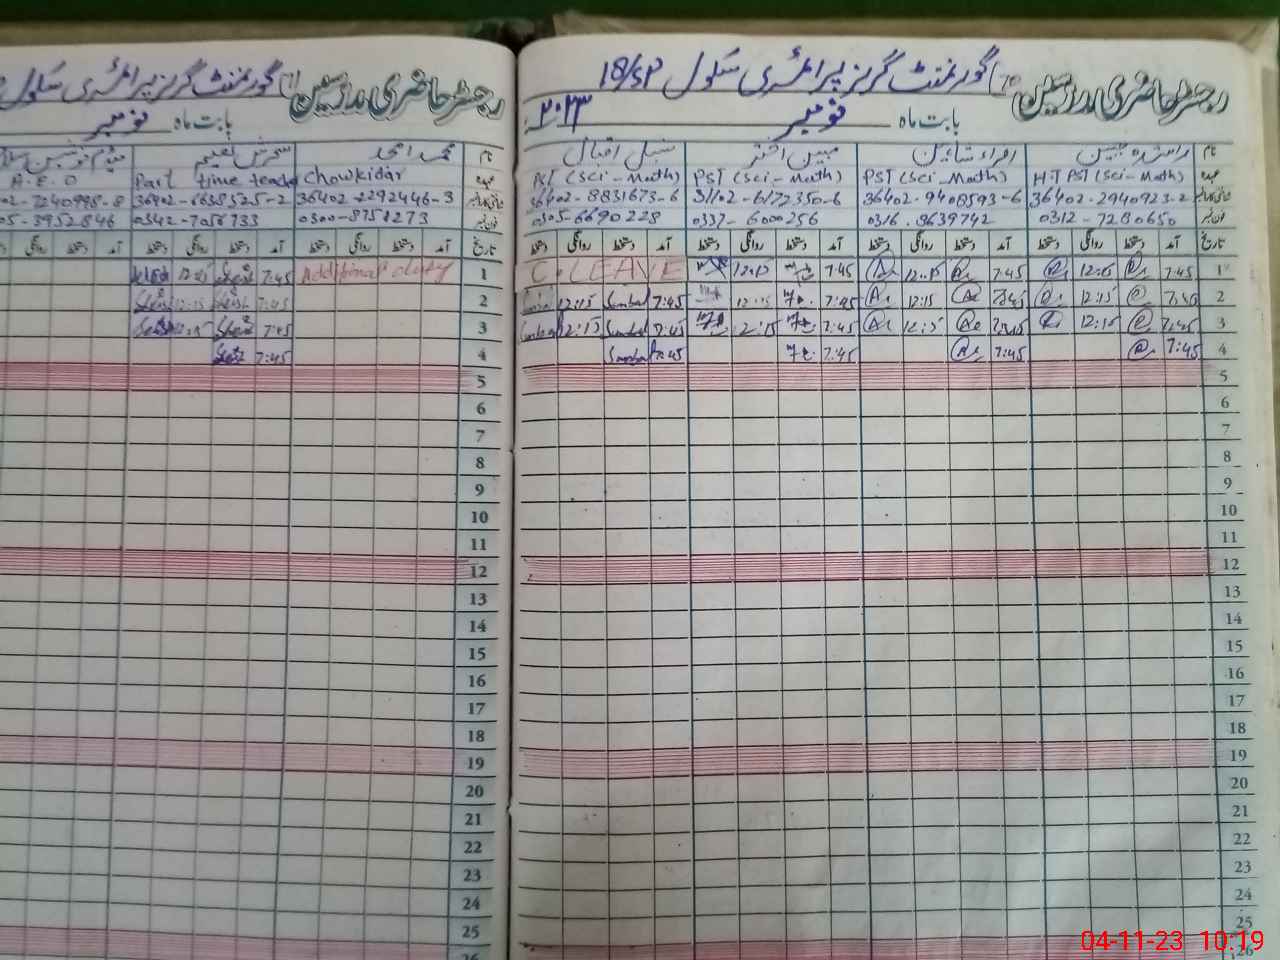 رجسٹر حاضری مدرسین گورنمنٹ گرلز پرائمری سکول 18/SP
بابت ماہ نومبر ۲۰۲۳
نام راشدہ مبین اقراء شاہین مبین اختر سنبل اقبال
عہدہ HT PST (Sci-Math) PST (Sci-Math) PST (Sci-Math) PST (Sci-Math)
36402-2940923-2 36402-9408593-6 31102-6172350-6 36402-8831673-6
0312-7280650 0316-9639742 0337-6000256 0305-6690228
تاریخ آمد دستخط روانگی دستخط آمد دستخط روانگی دستخط آمد دستخط روانگی دستخط آمد دستخط روانگی دستخط
1 7:45 12:15 7:45 12:15 7:45 12:15 C.LEAVE
2 12:15 7:45 12:15 7:45 12:15 7:45 Sumbal 12:15
3 7:45 12:15 7:45 12:15 7:45 Sumbal 12:15
4 7:45 7:45 7:45 7:45 Sumbal
5
6
7
8
9
10
11
12
13
14
15
16
17
18
19
20
21
22
23
24
25
26
رجسٹر حاضری مدرسین گورنمنٹ گرلز پرائمری سکول
بابت ماہ نومبر
نام محمد امجد سحرش نعیم
Chowkidar Part time teacher A.E.O
36402-2292446-3 36402-6638525-2 02-7240998-8
0300-8751273 0342-7056733 05-3952846
تاریخ آمد دستخط روانگی دستخط آمد دستخط روانگی دستخط آمد
1 Additional duty 7:45 12:15
2 7:45 12:15
3 7:45 12:15
4 7:45
5
6
7
8
9
10
11
12
13
14
15
16
17
18
19
20
21
22
23
24
25
26
04-11-23 10:19